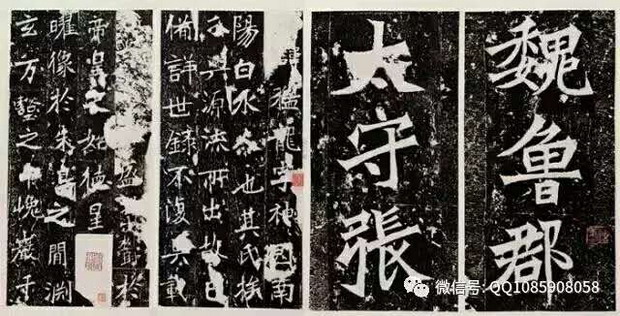 魏魯郡
太守張
猛龍字神囧南
陽白水人也其氏族
興源流所出故已
備詳世錄不復具載
盛宣聲於
帝皇之始德星
曜像於朱鳥之間淵
玄万壑之中巉巖千
微信号: QQ1085908058